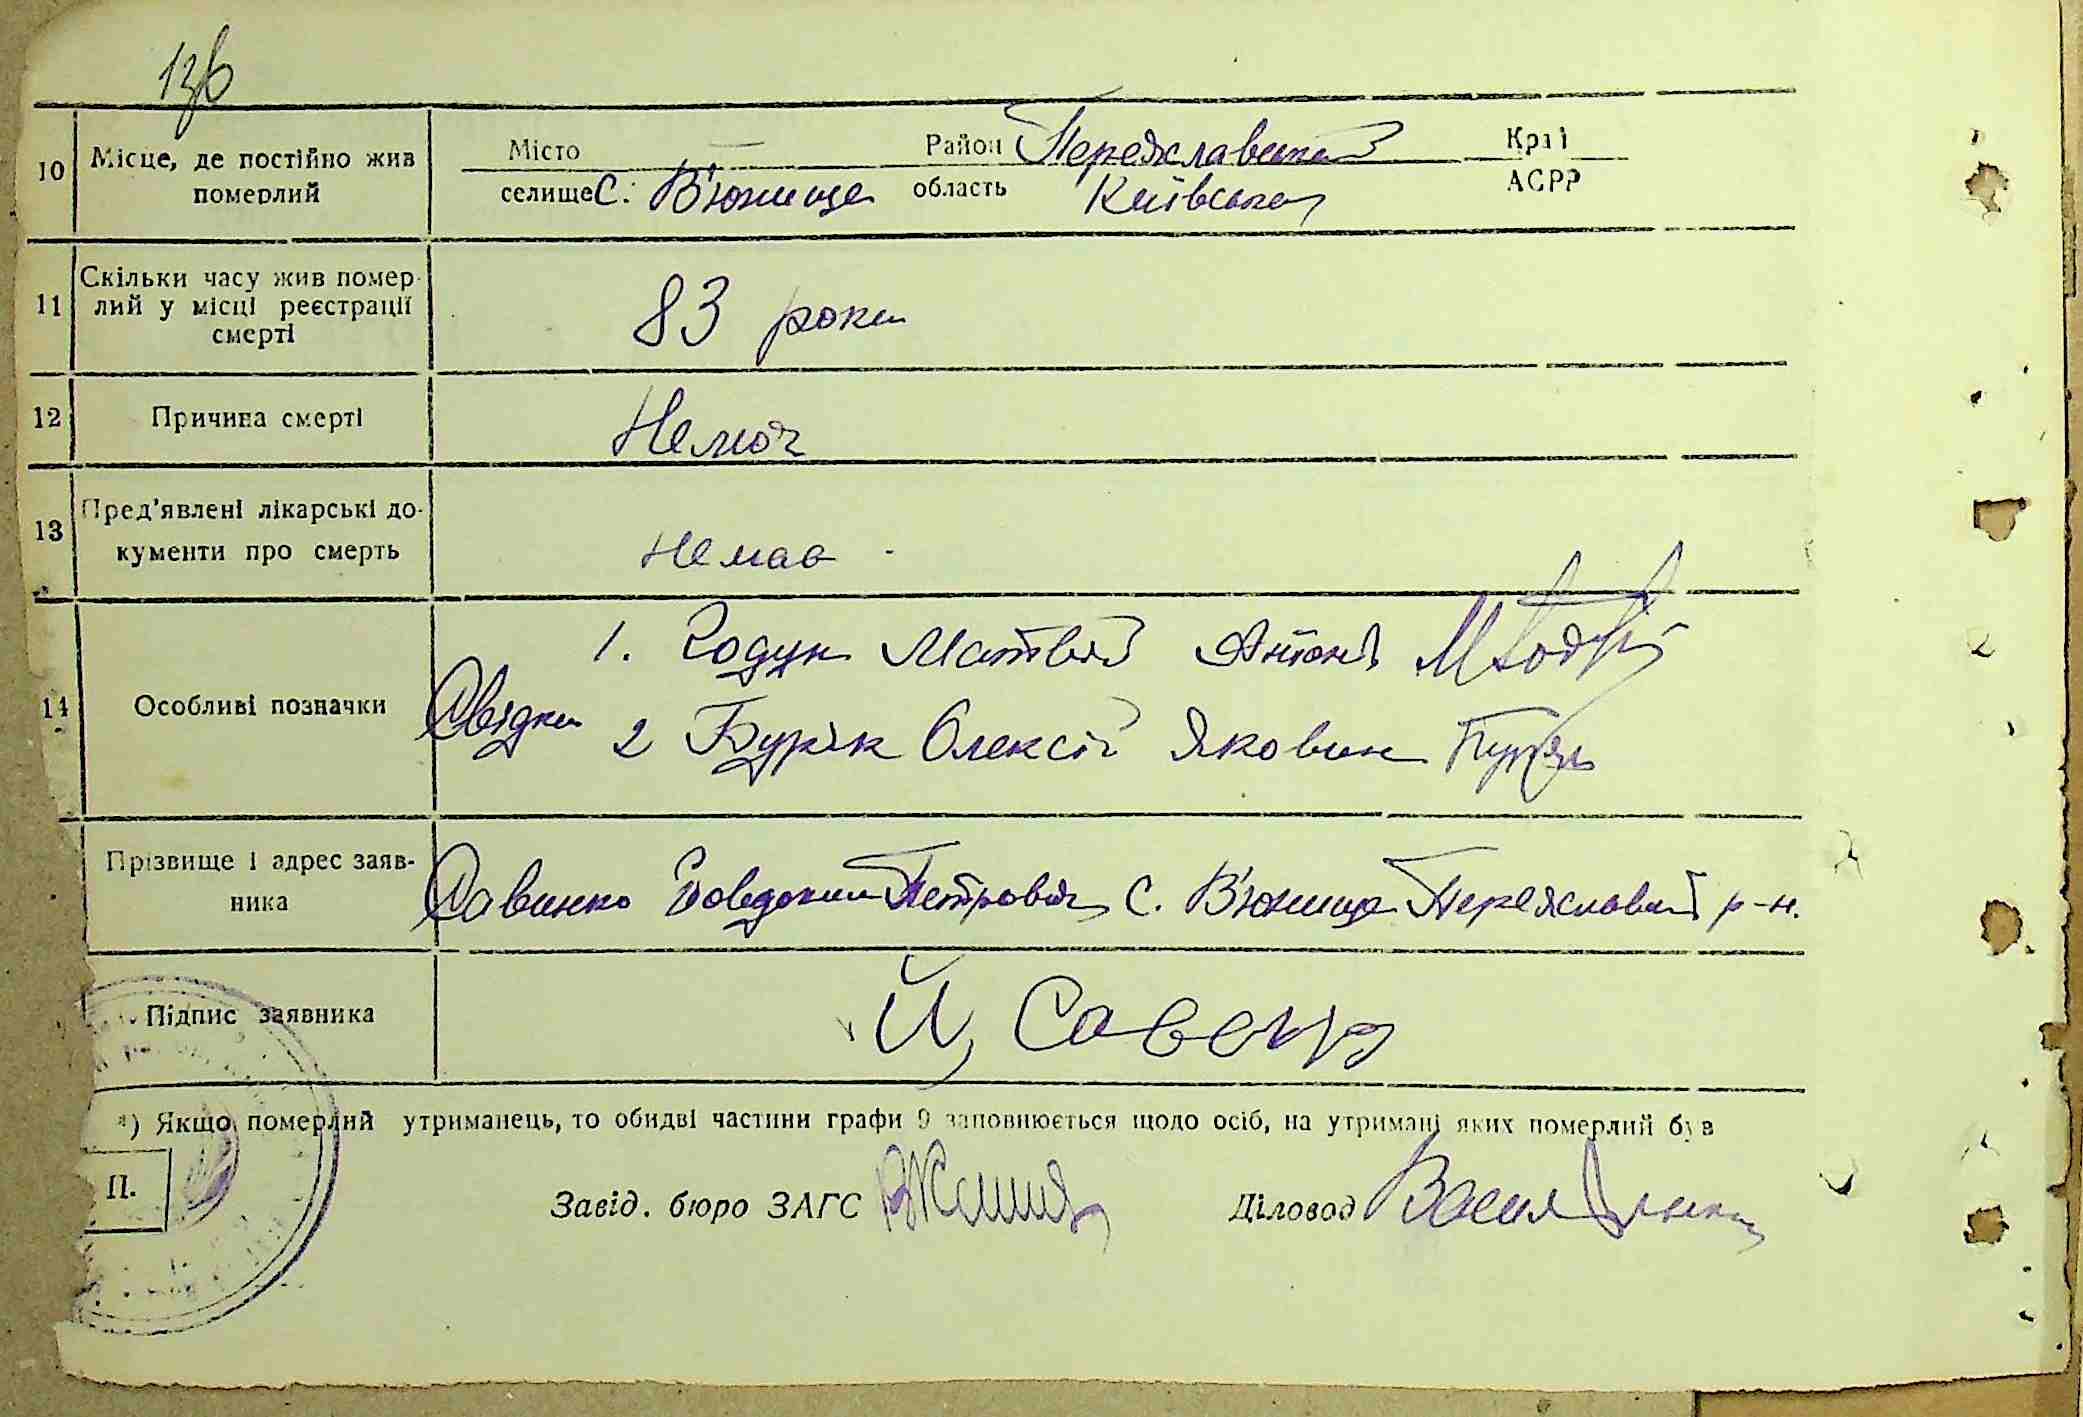 13б
10 Місце, де постійно жив померлий
Місто — Район Переяславський Край
селище с. В'юнище область Київська АСРР
11 Скільки часу жив помер-
лий у місці реєстрації
смерті
83 роки
12 Причина смерті Немоч
13 Пред'явлені лікарські до-
кументи про смерть
Немає
14 Особливі позначки
Свідки
1. Годун Матвій Антонів
2 Буряк Олексій Яковин
Прізвище і адрес заяв-
ника
Савинко Йовдоким Петрович с. В'юнище Переяславський р-н.
Підпис заявника Й Савенко
*) Якщо померлий утриманець, то обидві частини графи 9 заповнюється щодо осіб, на утримані яких померлий був
П.
Завід. бюро ЗАГС Діловод